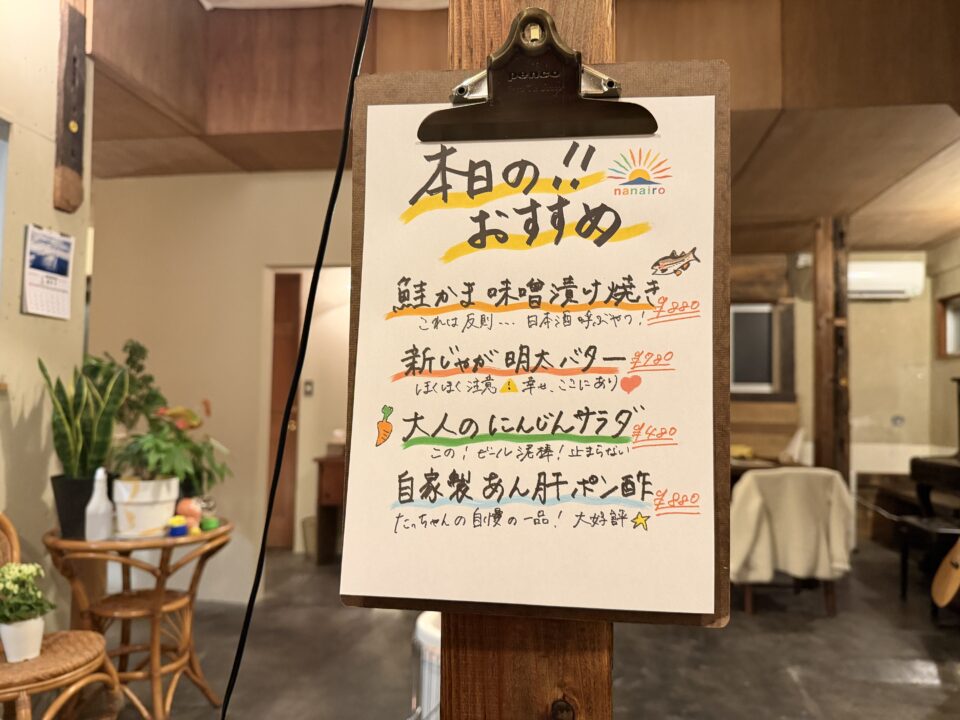 penco
本日の!!
nanairo
おすすめ
鮭かま 味噌漬け焼き ¥880
これは反則… 日本酒呼ぶやつ!
新じゃが 明太バター ¥780
ほくほく注意 ⚠ 幸せ、ここにあり ❤
大人のにんじんサラダ ¥480
この!ビール泥棒!止まらない
自家製 あん肝ポン酢 ¥880
たっちゃんの自慢の一品! 大好評 ⭐